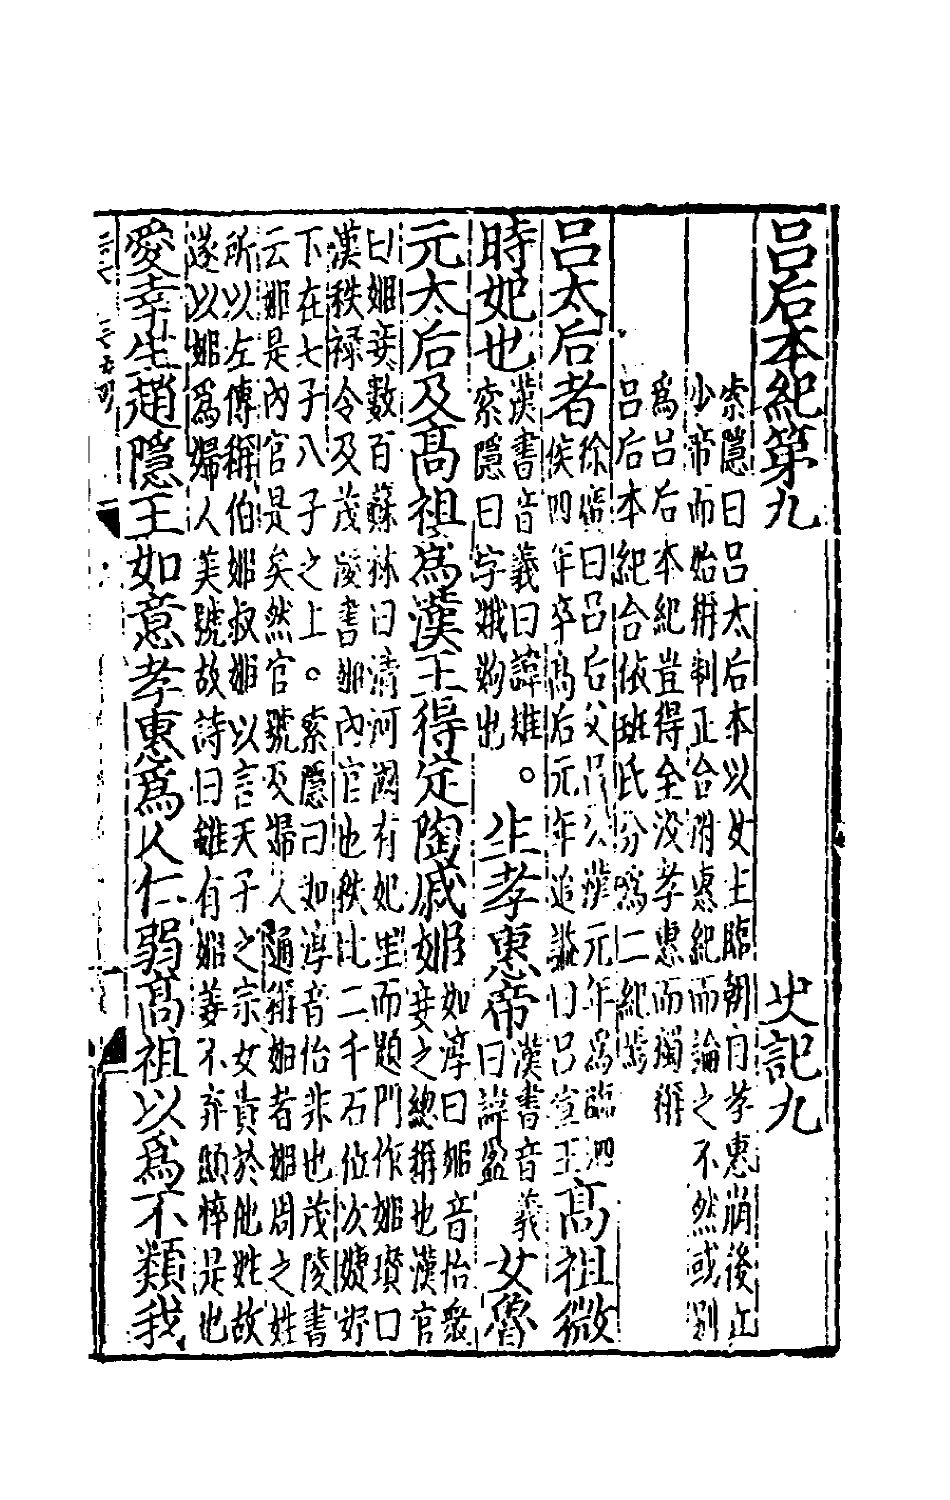 呂后本紀第九　史記九
索隱曰呂太后本以女主臨朝自孝惠崩後立
少帝而始稱制正合附惠紀而論之不然或別
爲呂后本紀豈得全沒孝惠而獨稱
呂后本紀合依班氏分爲二紀焉
呂太后者
徐廣曰呂后父呂公漢元年爲臨泗
侯四年卒高后元年追謚曰呂宣王
高祖微
時妃也
漢書音義曰諱雉。
索隱曰字娥姁也
生孝惠帝
漢書音義
曰諱盈
女魯
元太后及高祖爲漢王得定陶戚姬
如淳曰姬音怡衆
妾之總稱也漢官
曰姬妾數百蘇林曰清河國有妃里而題門作姬瓚曰
漢秩祿令及茂陵書姬內官也秩比二千石位次婕妤
下在七子八子之上。索隱曰如淳音怡非也茂陵書
云姬是內官是矣然官號及婦人通稱姬者姬周之姓
所以左傳稱伯姬叔姬以言天子之宗女貴於他姓故
遂以姬爲婦人美號故詩曰雖有姬姜不弃顦悴是也
愛幸生趙隱王如意孝惠爲人仁弱高祖以爲不類我